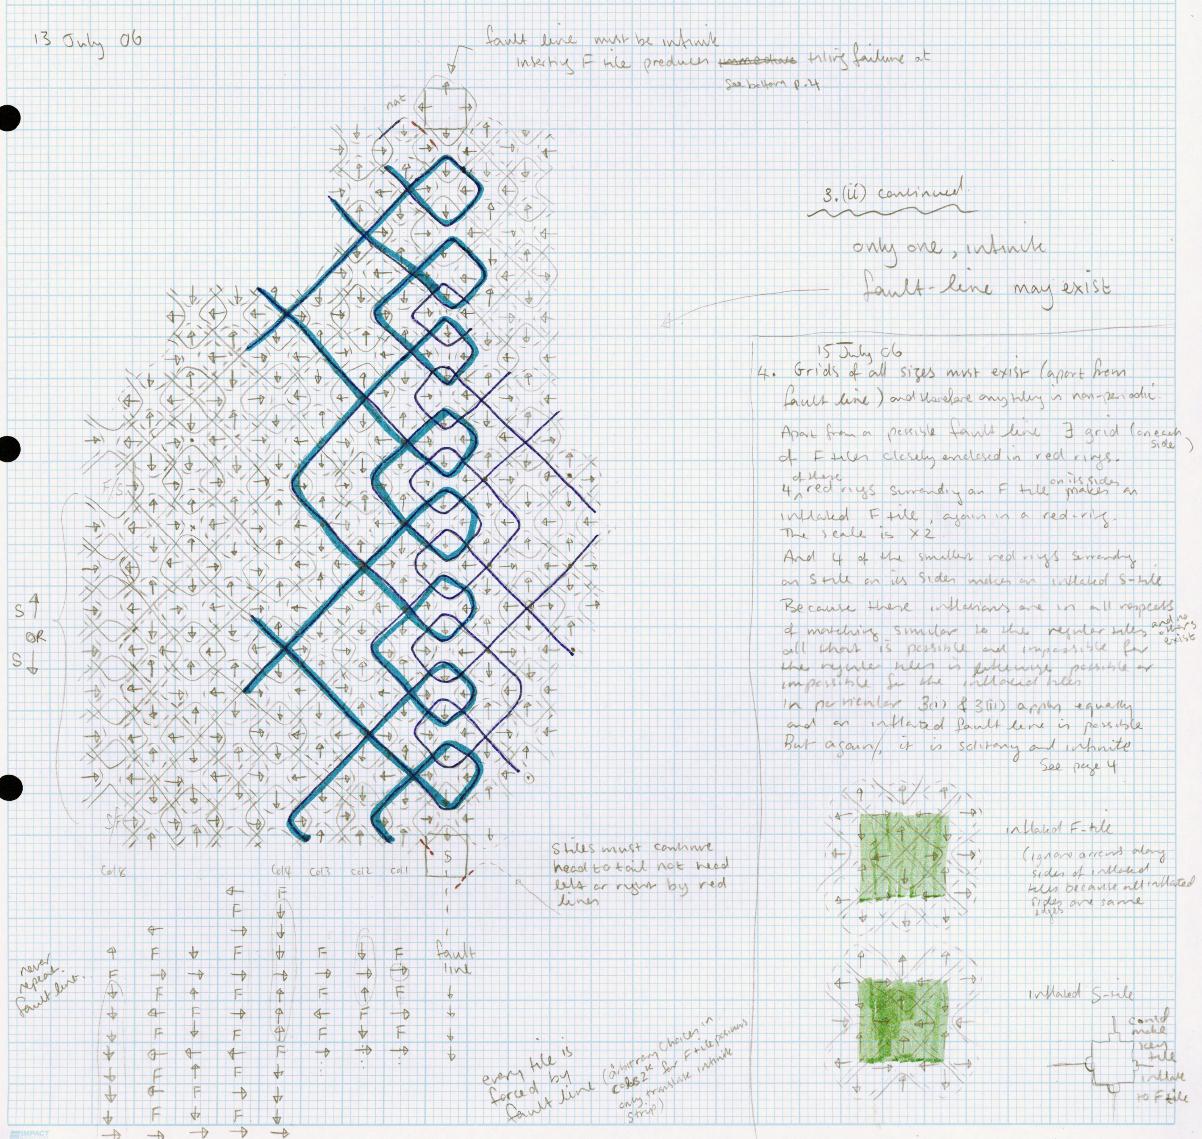 13 July 06
fault line must be infinite
inserting F tile produces immediate tiling failure at
See bottom p.4
not
3.(ii) continued
only one, infinite
fault-line may exist
15 July 06
4. Grids of all sizes must exist (apart from
fault line) and therefore any tiling is non-periodic.
Apart from a possible fault line ∃ grid (on each side)
of F tiles closely enclosed in red rings.
4 of these red rings surrounding an F tile on its sides makes an
inflated F tile, again in a red-ring.
The scale is ×2
And 4 of the smallest red rings surrounding
an S tile on its sides makes an inflated S-tile
Because these inflations are in all respects
of matching similar to the regular tiles and no others exist
all that is possible and impossible for
the regular tiles is likewise possible or
impossible for the inflated tiles
In particular 3(i) & 3(ii) apply equally
and an inflated fault line is possible
But again, it is solitary and infinite
See page 4
F/S
S ↑
OR
S ↓
S/F
S
S tiles must continue
head to tail not head
left or right by red
lines
inflated F-tile
(ignore arrows along
sides of inflated
tiles because all inflated
sides are same
edges
inflated S-tile
could
make
key
tile
inflate
to F tile
Col 8 Col 4 Col 3 Col 2 Col 1
← F
F ↓
← → ↑
↑ F ↓ F ↓ F ↓ F fault
F → → F → → → → line
↓ F ↑ F ↓ F ↑ F ↓
↓ ← F → ↑ ← F → ↓
↓ F ↓ F ↑ F ↓ F ↓
never
repeat
fault line.
every tile is
forced by
fault line
(arbitrary choices in
cols 2ᵏ for F tile positions
only translate infinite
strip)
IMPACT